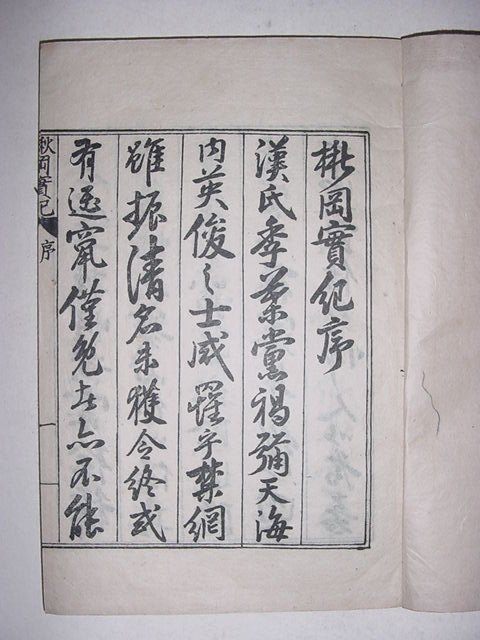 秋岡實紀序
漢氏季葉黨禍彌天海
内英俊之士咸罹乎禁網
雖振清名未獲令終或
有遁竄僅免者亦不能
秋岡實紀 序